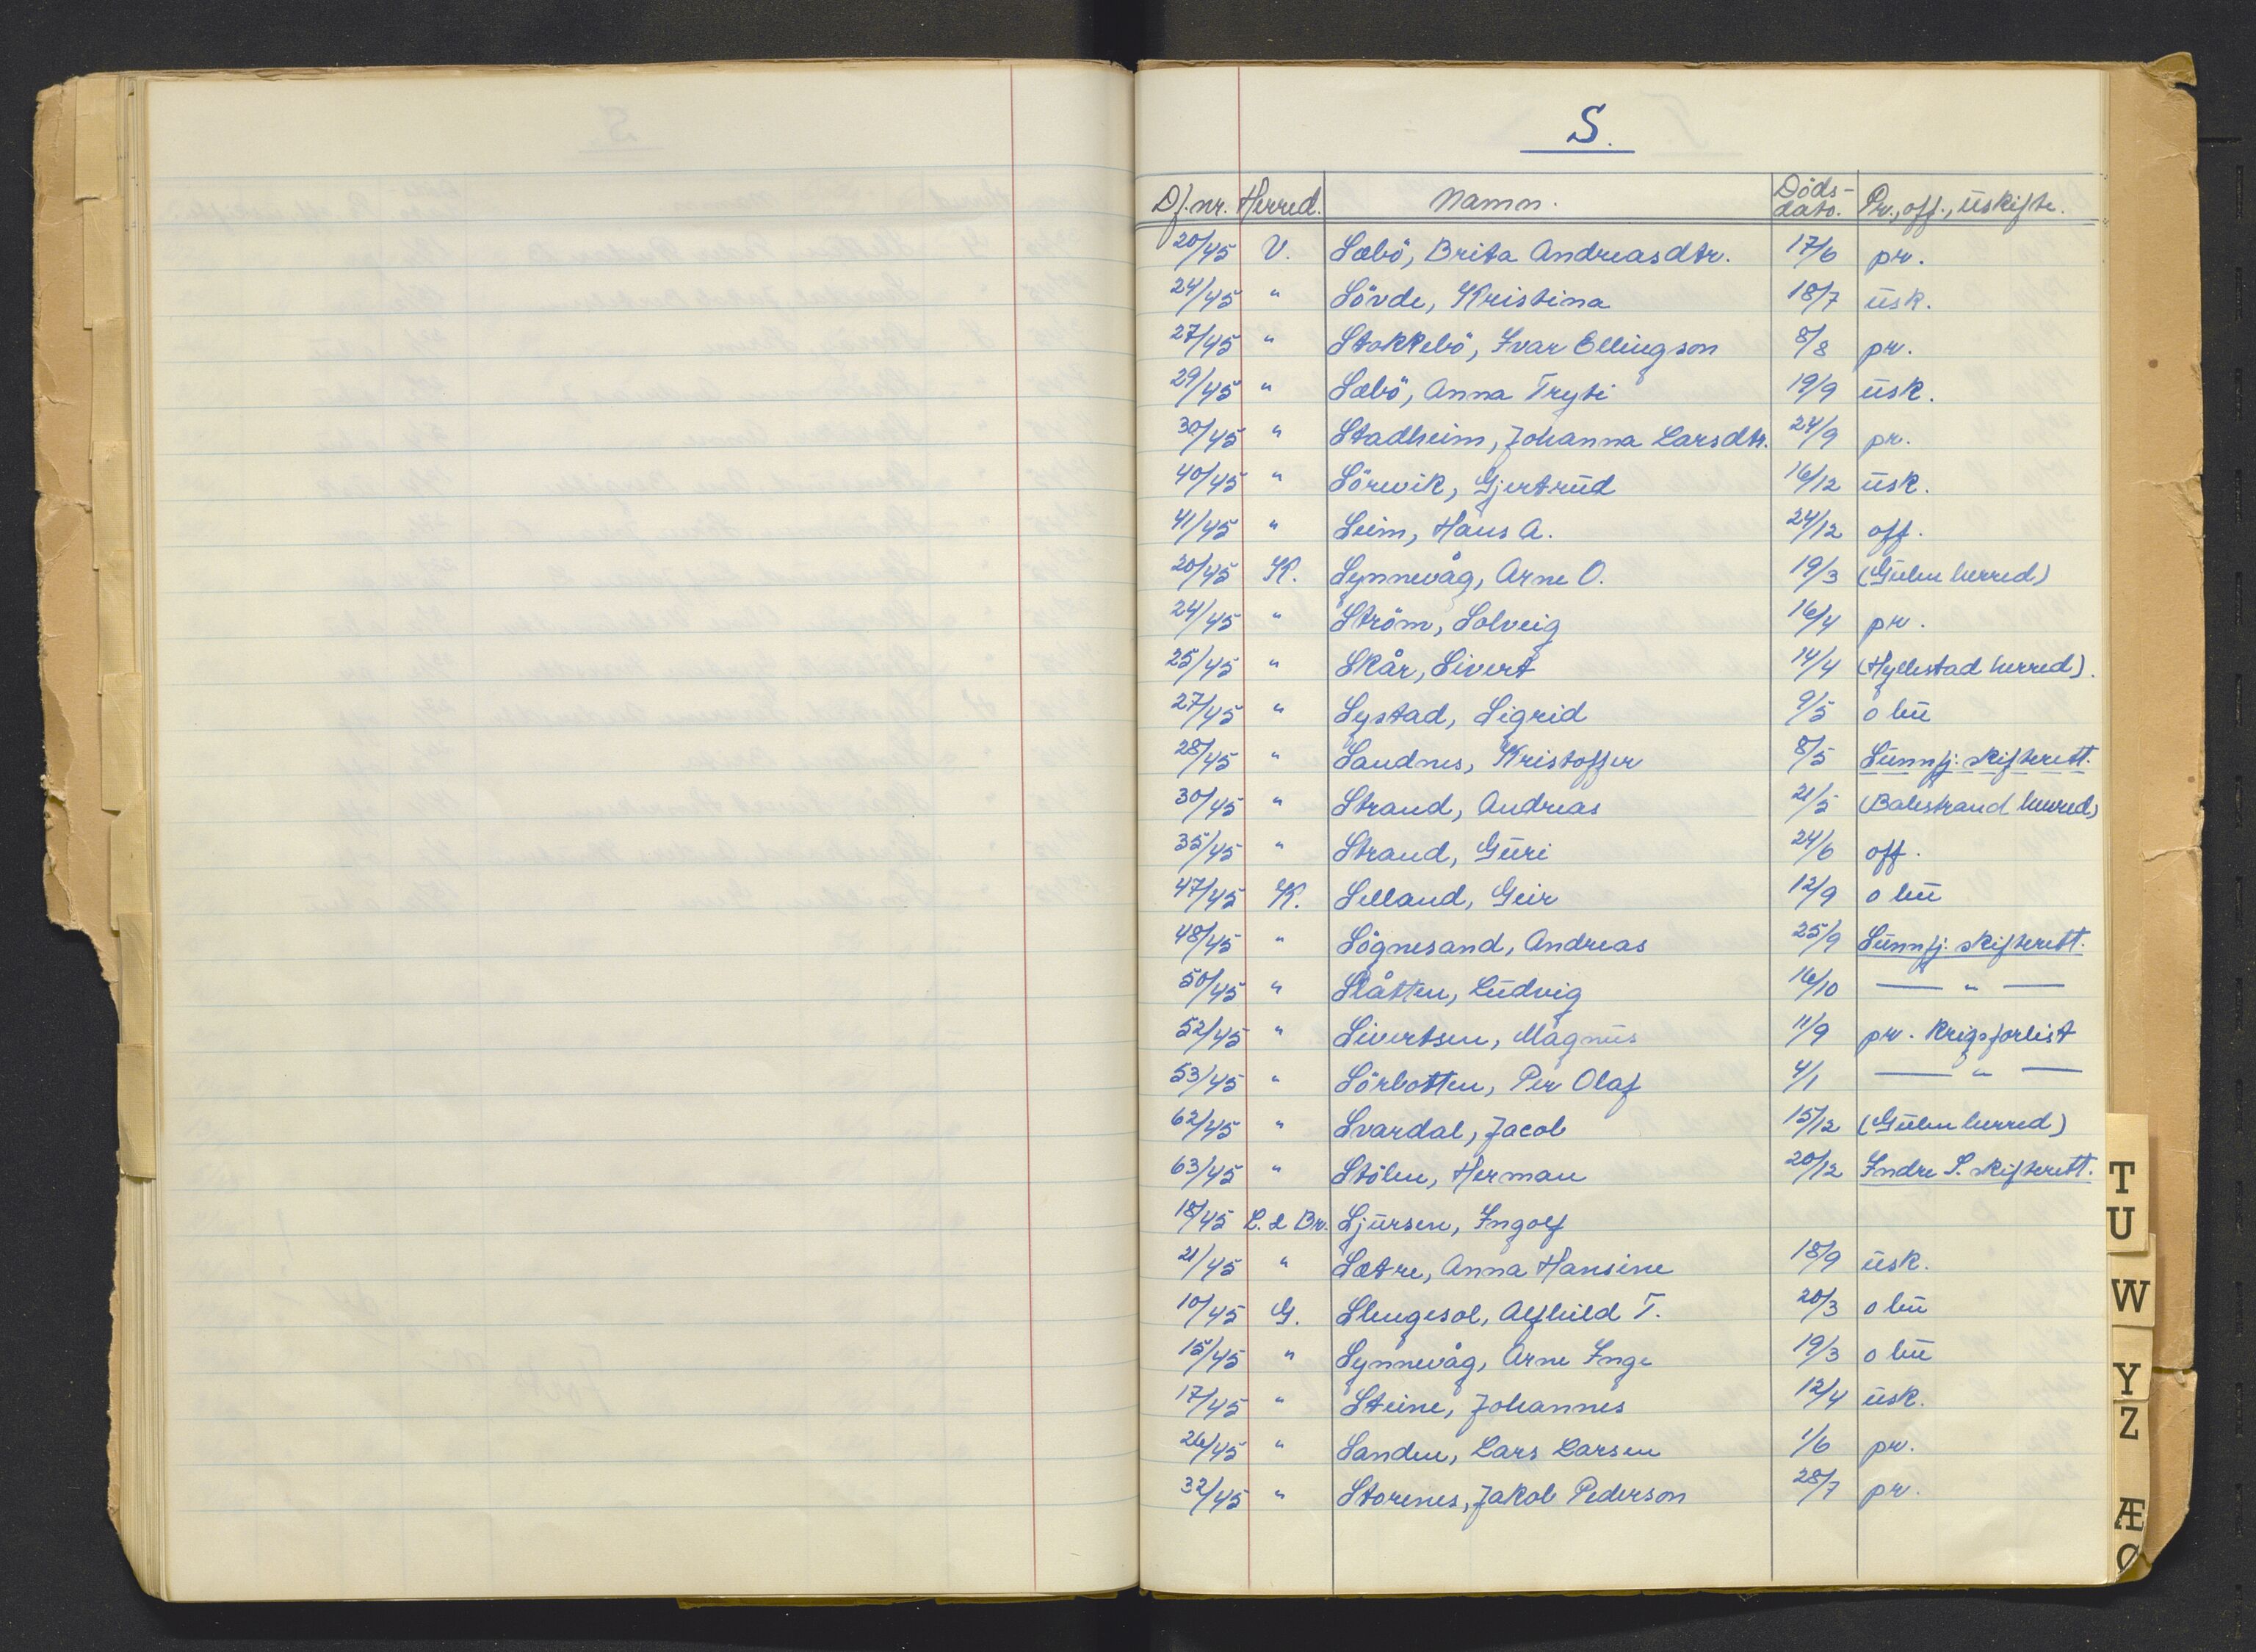 S.
Df.nr. Herred. Namn. Döds-dato. Pr., off., uskifte.
20/45 V. Sæbö, Brita Andreasdtr. 17/6 pr.
24/45 " Sövde, Kristina 18/7 usk.
27/45 " Stokkebö, Ivar Ellingson 8/8 pr.
29/45 " Sæbö, Anna Tryti 19/9 usk.
30/45 " Stadheim, Johanna Larsdtr. 24/9 pr.
40/45 " Sörevik, Gjertrud 16/12 usk.
41/45 " Seim, Hans A. 24/12 off.
20/45 K. Synnevåg, Arne O. 19/3 (Gulen herred)
24/45 " Ström, Solveig 16/4 pr.
25/45 " Skår, Sivert 14/4 (Hyllestad herred).
27/45 " Systad, Sigrid 9/5 o bu
28/45 " Sandnes, Kristoffer 8/5 Sunnfj. skifterett.
30/45 " Strand, Andreas 21/5 (Balestrand herred)
35/45 " Strand, Guri 24/6 off.
47/45 K. Selland, Geir 12/9 o bu
48/45 " Sögnesand, Andreas 25/9 Sunnfj. skifterett.
50/45 " Slåtten, Ludvig 16/10 — " —
52/45 " Sivertsen, Magnus 11/9 pr. krigsforlist
53/45 " Sörbotten, Per Olaf 4/1 — " —
62/45 " Svardal, Jacob 15/12 (Gulen herred)
63/45 " Stölen, Herman 20/12 Indre S. skifterett.
18/45 L. & Br. Sjursen, Ingolf
21/45 " Sætre, Anna Hansine 18/9 usk.
10/45 G. Slengesol, Alfhild T. 20/3 o bu
15/45 " Synnevåg, Arne Inge 19/3 o bu
17/45 " Steine, Johannes 12/4 usk.
26/45 " Sanden, Lars Larsen 1/6 pr.
32/45 " Storenes, Jakob Pederson 28/7 pr.
T
U
W
Y
Z
Æ
Ø